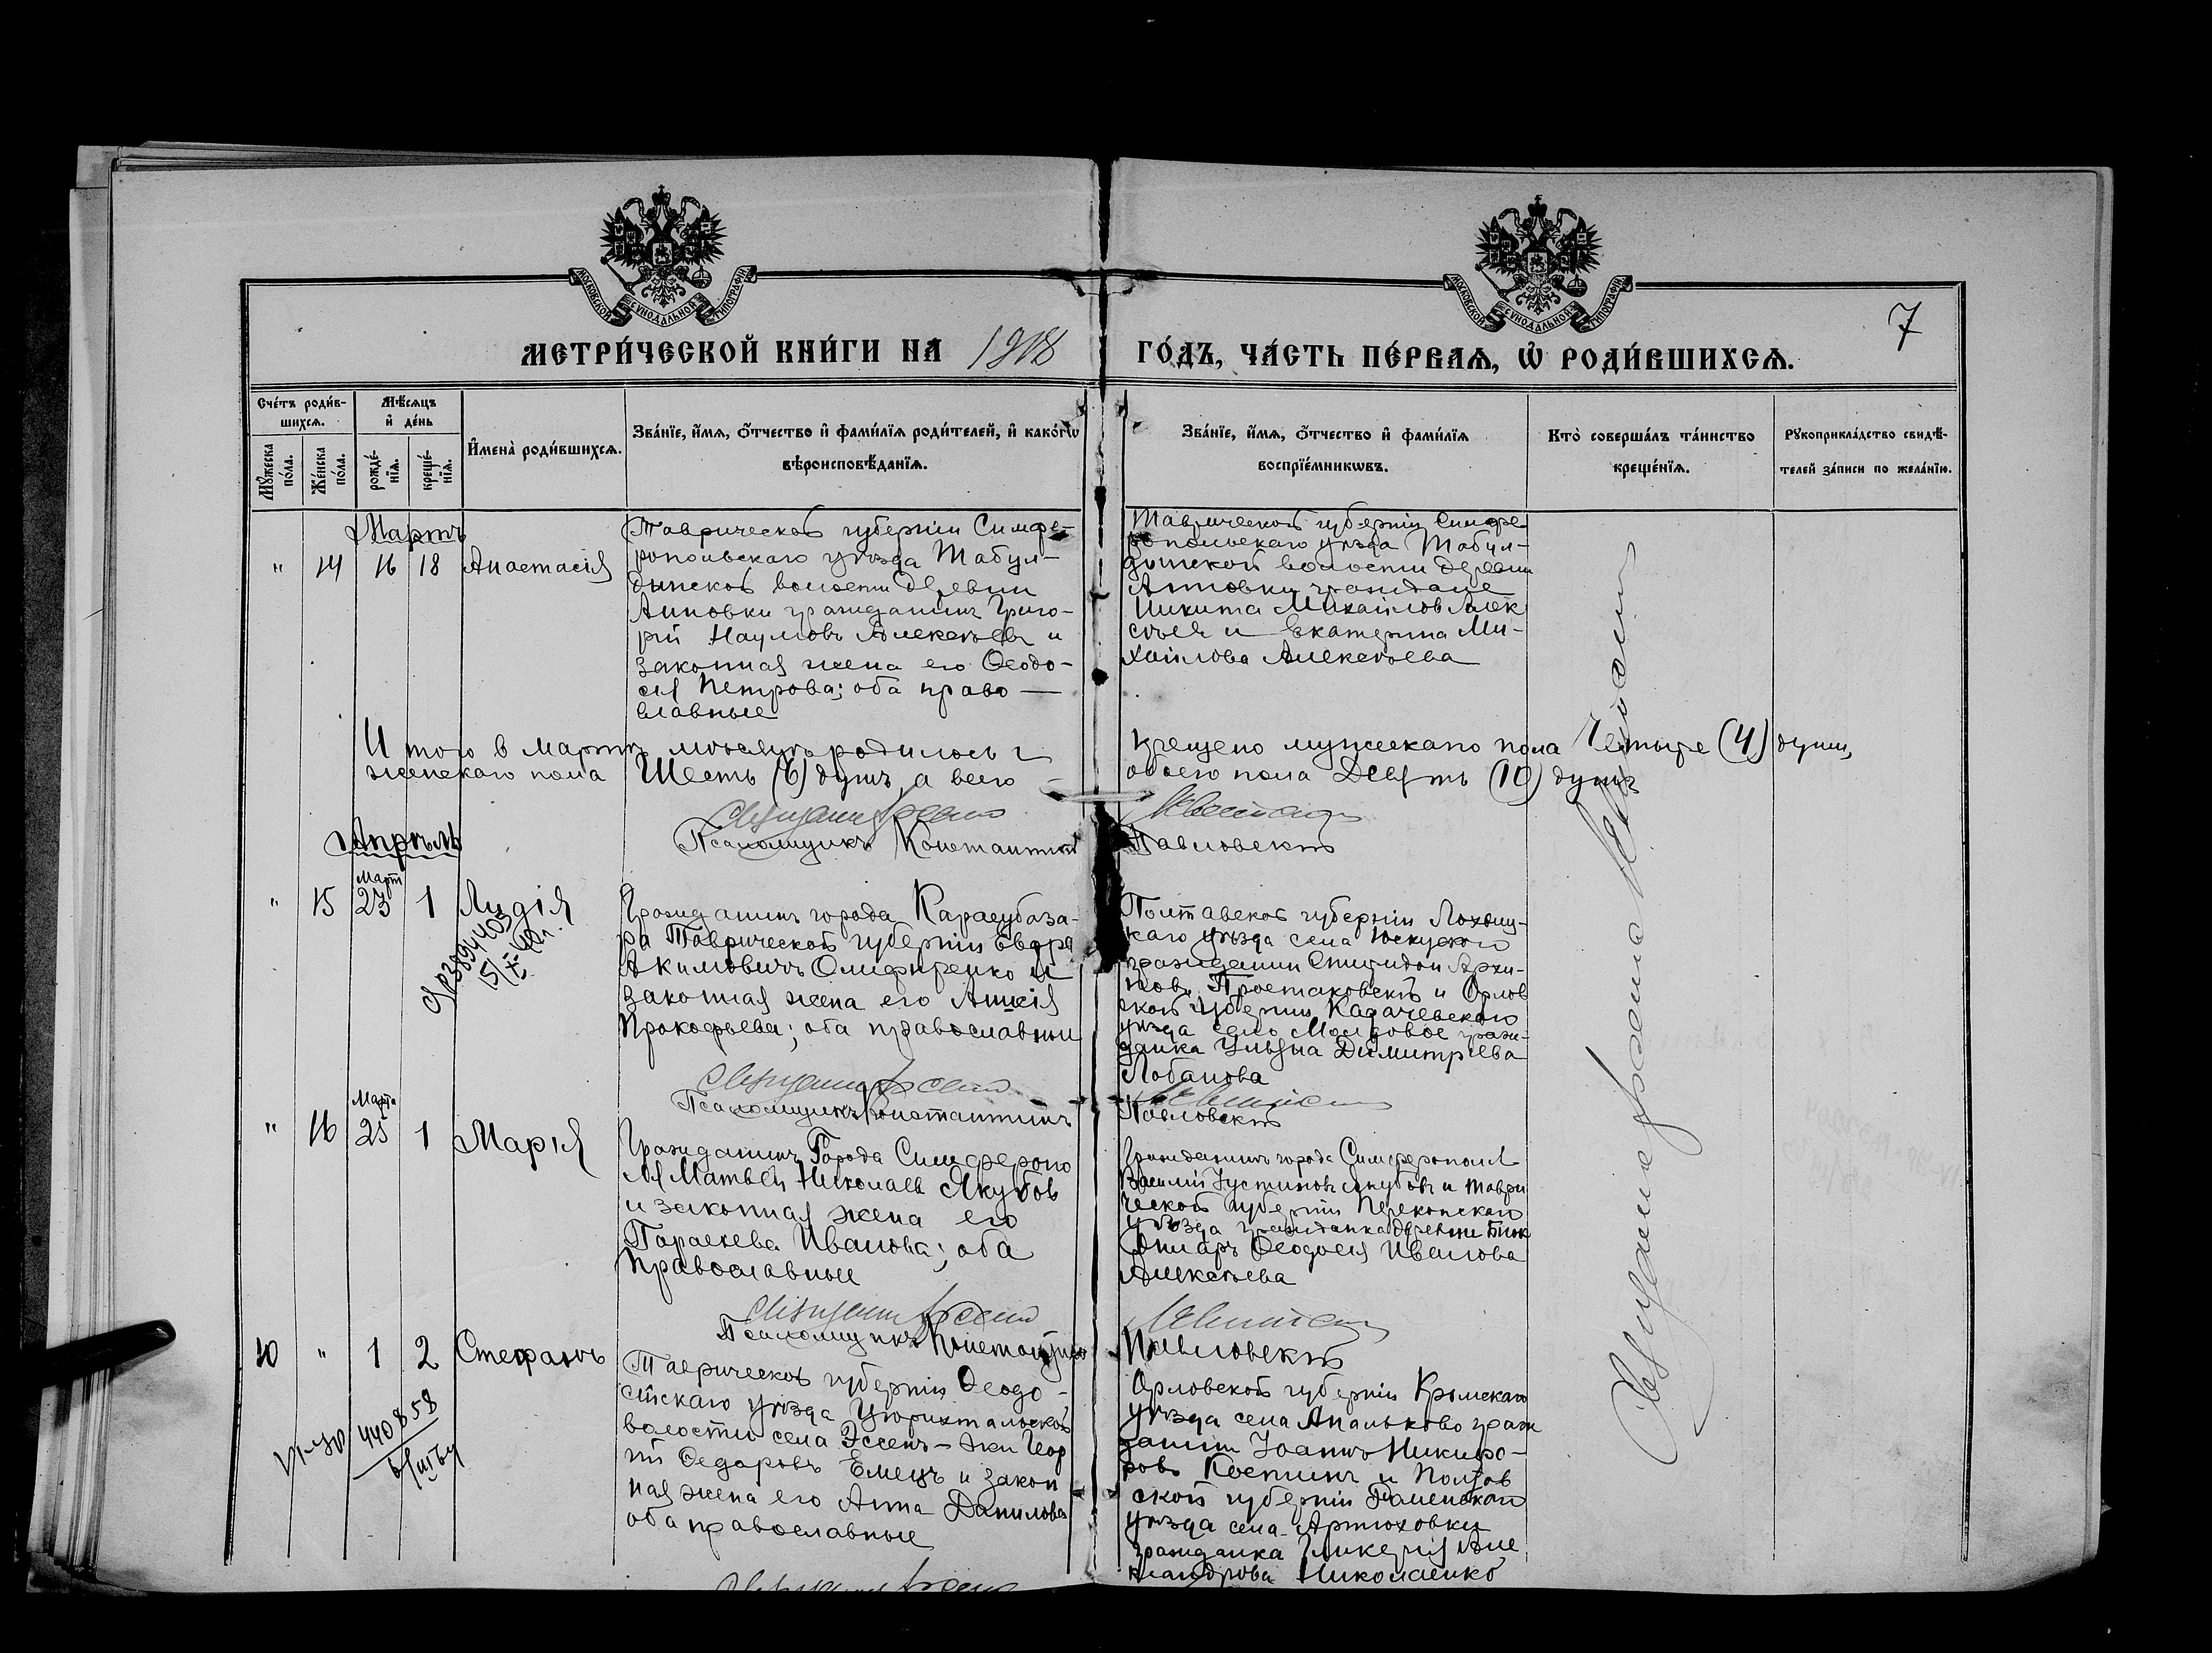 МОСКОВСКОЙ СѴНОДАЛЬНОЙ ТИПОГРАФІИ
МОСКОВСКОЙ СѴНОДАЛЬНОЙ ТИПОГРАФІИ
7
МЕТРИ́ЧЕСКОЙ КНИ́ГИ НА 1918 ГО́ДЪ, ЧА́СТЬ ПЕ́РВАѦ, Ѡ҆ РОДИ́ВШИХСѦ.
Сче́тъ роди́в-
шихсѧ.
Мѣ́сѧцъ
и҆ де́нь
Мꙋ́жеска
по́ла.
Же́нска
по́ла.
рожде́-
нїѧ.
креще́-
нїѧ.
И҆мена̀ роди́вшихсѧ.
Зва́нїе, и҆́мѧ, ѻ҆́тчество и҆ фами́лїѧ роди́телей, и҆ како́гѡ
вѣроисповѣ́данїѧ.
Зва́нїе, и҆́мѧ, ѻ҆́тчество и҆ фами́лїѧ
воспрїе́мникѡвъ.
Кто̀ соверша́лъ та́инство
креще́нїѧ.
Рꙋкоприкла́дство свидѣ́-
телей за́писи по жела́нїю.
Мартъ
" 14 16 18 Анастасія
Таврической губерніи Симфе-
ропольскаго уѣзда Табул-
динской волости деревни
Анновки гражданинъ Григо-
рій Наумовъ Алексѣевъ и
законная жена его Ѳеодо-
сія Петрова; оба право-
славные
Таврической губерніи Симфе
ропольскаго уѣзда Табул-
динской волости деревни
Анновки граждане
Никита Михайлов Алек
сѣевъ и Екатерина Ми-
хайлова Алексѣева
Итого в Мартѣ мѣсяцѣ родилось и крещено мужескаго пола Четыре (4) души,
женскаго пола Шесть (6) душъ, а всего обоего пола Десять (10) душъ
Священникъ Арсеній
Псаломщикъ Константинъ Павловскій
Апрѣль
Март
" 15 23 1 Лидія
Гражданинъ города Карасубаза-
ра Таврической губерніи
Акимовичъ Олифиренко и
законная жена его
Прокофьева; оба православны
Полтавской губерніи Лохвиц-
каго уѣзда села
гражданин Спиридон Архи-
пов и Орлов
ской губерніи
уѣзда село граж-
данка Ульяна Димитріева
Лобанова
Священникъ Арсеній
Псаломщикъ Константинъ Павловскій
Марта
" 16 25 1 Марія
Гражданинъ Города Симферопо
ля Матвей Николаев Якубов
и законная жена его
Параскева Иванова; оба
православные
Гражданинъ города Симферополя
Василій Іустиновъ Якубовъ и Таври
ческой губерніи Перекопскаго
уѣзда гражданка деревни Биюк
Ѳеодосія Иванова
Алексѣева
Священникъ Арсеній
Псаломщикъ Константинъ Павловскій
10 " 1 2 Стефанъ
440858
Таврической губерніи Ѳеодо-
сійскаго уѣзда Цюрихтальской
волости села Эссенъ-Эки Геор
гій Ѳедоровъ Емецъ и закон
ная жена его Анна Данилова
оба православные
Орловской губерніи Кромскаго
уѣзда села Апальково граж
данин Іоаннъ Никифо-
ровъ Костинъ и Полтав
ской губерніи Роменскаго
уѣзда села Артюховки
гражданка Гликерія Але
ксандрова Николаенко
Священникъ Арсеній